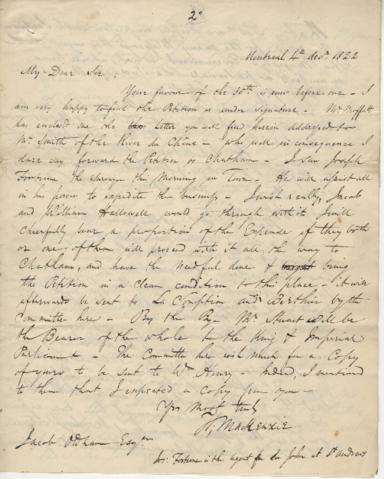 2°
Montreal 4th Decr 1822
My Dear Sir,
Your favour of the 30th is now before me - I
am very happy to find the Petition is under signature - Mr Moffatt
has enclosed me the letter you will find herein addressed for
Mr Smith of the River du Chene - who will in consequence I
dare say forward the Petition to Chatham - I saw Joseph
Fortune the Survr this Morning in Town. He will assist all
in his power to expedite the business - I wish really, Jacob
and William Hallowell would go through with it I will
cheerfully bear a proportion of the Expence if they both
or one of them will proceed with it all the way to
Chatham, and have the needful done & bring
the Petition in a clean condition to this place - it will
afterwards be sent to and Berthier by the
Committee here - By the By - Mr Stuart will be
the Bearer of the whole to the King & Imperial
Parliament - The Committee here wish much for a Copy
of yours to be sent to Wm Henry - Indeed, I mentioned
to them that I expected a copy from you -
Yrs Most truly
MacKenzie
Jacob Oldham Esqr
Jos: Fortune is the agent for Sir John at St Andrews